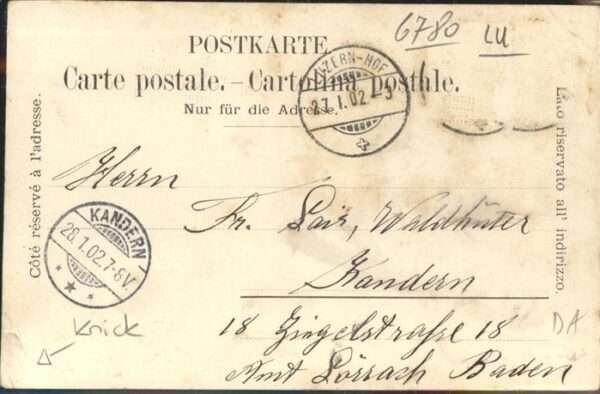 6780 LU
POSTKARTE
Carte postale. – Cartolina Postale.
Nur für die Adresse.
LUZERN-HOF
27.I.02.–3
Côté réservé à l'adresse.
Lato riservato all' indirizzo.
Herrn
Fr. Waldhüter
Kandern
18 Ziegelstraße 18
Amt Lörrach Baden
KANDERN
28.1.02.7-8V
Knick
DA